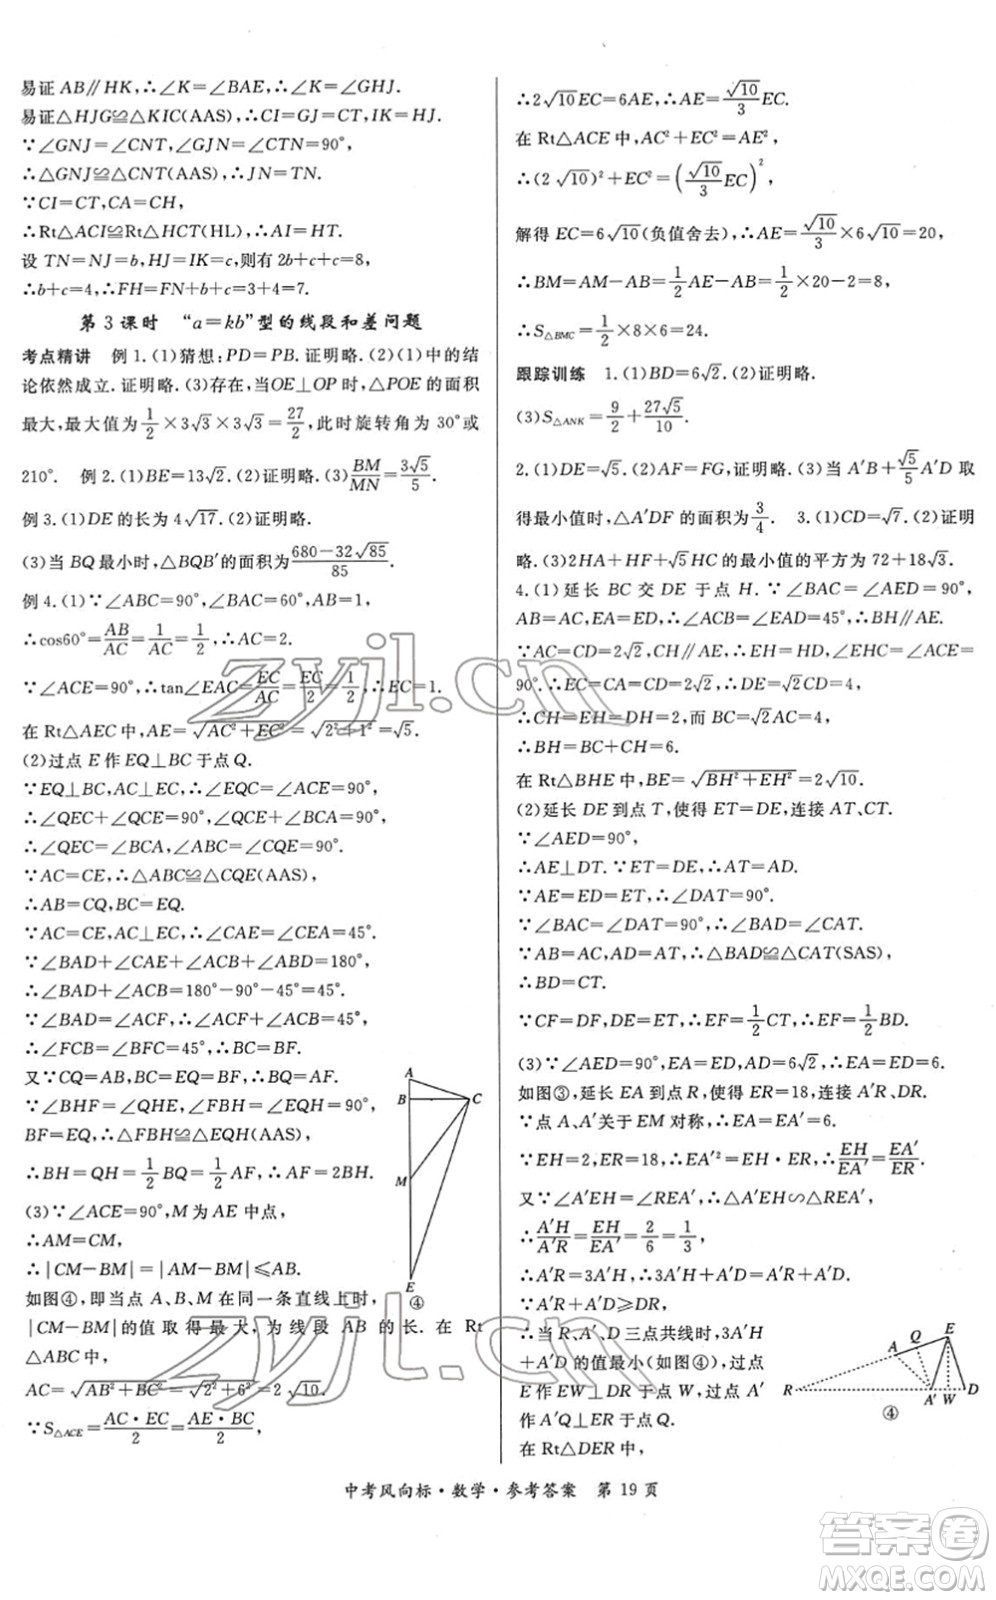 易证 AB∥HK,∴∠K=∠BAE,∴∠K=∠GHJ.
易证△HJG≌△KIC(AAS),∴CI=GJ=CT,IK=HJ.
∵∠GNJ=∠CNT,∠GJN=∠CTN=90°,
∴△GNJ≌△CNT(AAS),∴JN=TN.
∵CI=CT,CA=CH,
∴Rt△ACI≌Rt△HCT(HL),∴AI=HT.
设 TN=NJ=b,HJ=IK=c,则有 2b+c+c=8,
∴b+c=4,∴FH=FN+b+c=3+4=7.
第 3 课时 “a=kb”型的线段和差问题
考点精讲 例 1.(1)猜想:PD=PB.证明略.(2)(1)中的结
论依然成立.证明略.(3)存在,当OE⊥OP时,△POE的面积
最大,最大值为1/2×3√3×3√3=27/2,此时旋转角为 30°或
210°. 例 2.(1)BE=13√2.(2)证明略.(3)BM/MN=3√5/5.
例 3.(1)DE 的长为 4√17.(2)证明略.
(3)当 BQ 最小时,△BQB′的面积为(680-32√85)/85.
例 4.(1)∵∠ABC=90°,∠BAC=60°,AB=1,
∴cos60°=AB/AC=1/AC=1/2,∴AC=2.
∵∠ACE=90°,∴tan∠EAC=EC/AC=EC/2=1/2,∴EC=1.
在 Rt△AEC 中,AE=√(AC²+EC²)=√(2²+1²)=√5.
(2)过点 E 作 EQ⊥BC 于点 Q.
∵EQ⊥BC,AC⊥EC,∴∠EQC=∠ACE=90°,
∴∠QEC+∠QCE=90°,∠QCE+∠BCA=90°,
∴∠QEC=∠BCA,∠ABC=∠CQE=90°.
∵AC=CE,∴△ABC≌△CQE(AAS),
∴AB=CQ,BC=EQ.
∵AC=CE,AC⊥CE,∴∠CAE=∠CEA=45°.
∵∠BAD+∠CAE+∠ACB+∠ABD=180°,
∴∠BAD+∠ACB=180°-90°-45°=45°.
∵∠BAD=∠ACF,∴∠ACF+∠ACB=45°,
∴∠FCB=∠BFC=45°,∴BC=BF.
又∵CQ=AB,BC=BF,∴BQ=AF.
∵∠BHF=∠QHE,∠FBH=∠EQH=90°,
BF=EQ,∴△FBH≌△EQH(AAS),
∴BH=QH=1/2BQ=1/2AF,∴AF=2BH.
(3)∵∠ACE=90°,M 为 AE 中点,
∴AM=CM,
∴|CM-BM|=|AM-BM|≤AB.
如图④,即当点 A、B、M 在同一条直线上时,
|CM-BM|的值取得最大,为线段 AB 的长.在 Rt
△ABC 中,
AC=√(AB²+BC²)=√(2²+6²)=2√10.
∵S△ACE=AC·EC/2=AE·BC/2,
A
B
C
M
E
④
∴2√10EC=6AE,∴AE=√10/3EC.
在 Rt△ACE 中,AC²+EC²=AE²,
∴(2√10)²+EC²=(√10/3EC)²,
解得 EC=6√10(负值舍去),∴AE=√10/3×6√10=20,
∴BM=AM-AB=1/2AE-AB=1/2×20-2=8,
∴S△BMC=1/2×8×6=24.
跟踪训练 1.(1)BD=6√2.(2)证明略.
(3)S△ANK=9/2+27√5/10.
2.(1)DE=√5.(2)AF=FG,证明略.(3)当 A′B+√5/5A′D 取
得最小值时,△A′DF 的面积为3/4. 3.(1)CD=√7.(2)证明
略.(3)2HA+HF+√5HC 的最小值的平方为 72+18√3.
4.(1)延长 BC 交 DE 于点 H.∵∠BAC=∠AED=90°,
AB=AC,EA=ED,∴∠ACB=∠EAD=45°,∴CH∥AE.
∵AC=CD=2√2,CH∥AE,∴EH=HD,∠CHD=∠AED=
90°.∵AC=CD=2√2,∴DE=√2CD=4,
∴CH=EH=DH=2,而 BC=√2AC=4,
∴BH=BC+CH=6.
在 Rt△BHE 中,BE=√(BH²+EH²)=2√10.
(2)延长 DE 到点 T,使得 ET=DE,连接 AT,CT.
∵∠AED=90°,
∴AE⊥DT.∵ET=DE,∴AT=AD.
∵AE=ED=ET,∴∠DAT=90°.
∵∠BAC=∠DAT=90°,∴∠BAD=∠CAT.
∵AB=AC,AD=AT,∴△BAD≌△CAT(SAS),
∴BD=CT.
∵CF=DF,DE=ET,∴EF=1/2CT,∴EF=1/2BD.
(3)∵∠AED=90°,EA=ED,AD=6√2,∴EA=ED=6.
如图③,延长 EA 到点 R,使得 ER=18,连接 A′R,DR.
∵点 A、A′关于 EM 对称,∴EA=EA′=6.
∵EH=2,ER=18,∴EA′²=EH·ER,∴EH/EA′=EA′/ER.
又∵∠A′EH=∠REA′,∴△A′EH∽△REA′,
∴A′H/A′R=EH/EA′=2/6=1/3,
∴A′R=3A′H,∴3A′H+A′D=A′R+A′D.
∵A′R+A′D≥DR,
∴当 R、A′、D 三点共线时,3A′H
+A′D 的值最小(如图④),过点
E 作 EW⊥DR 于点 W,过点 A′
作 A′Q⊥ER 于点 Q.
在 Rt△DER 中,
R
A
Q
E
A′
W
D
④
中考风向标·数学·参考答案 第 19 页
zyjl.cn
zyjl.cn
答案卷
MXQE.COM